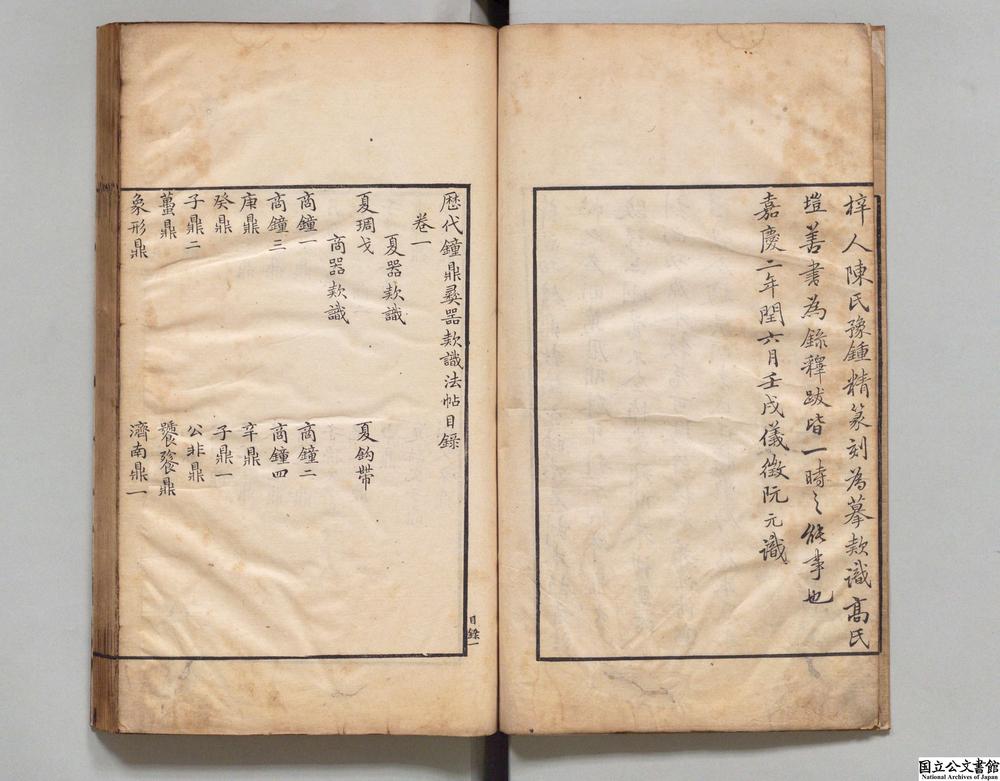 梓人陳氏豫鍾精篆刻為摹款識高氏
塏善書為錄釋跋皆一時之能事也
嘉慶二年閏六月壬戌儀徵阮元識
歷代鐘鼎彝器款識法帖目錄
卷一
夏器款識
夏琱戈
夏鈎帶
商器款識
商鐘一
商鐘二
商鐘三
商鐘四
庚鼎
辛鼎
癸鼎
子鼎一
子鼎二
公非鼎
蠆鼎
饕餮鼎
象形鼎
濟南鼎一
目錄一
国立公文書館
National Archives of Japan